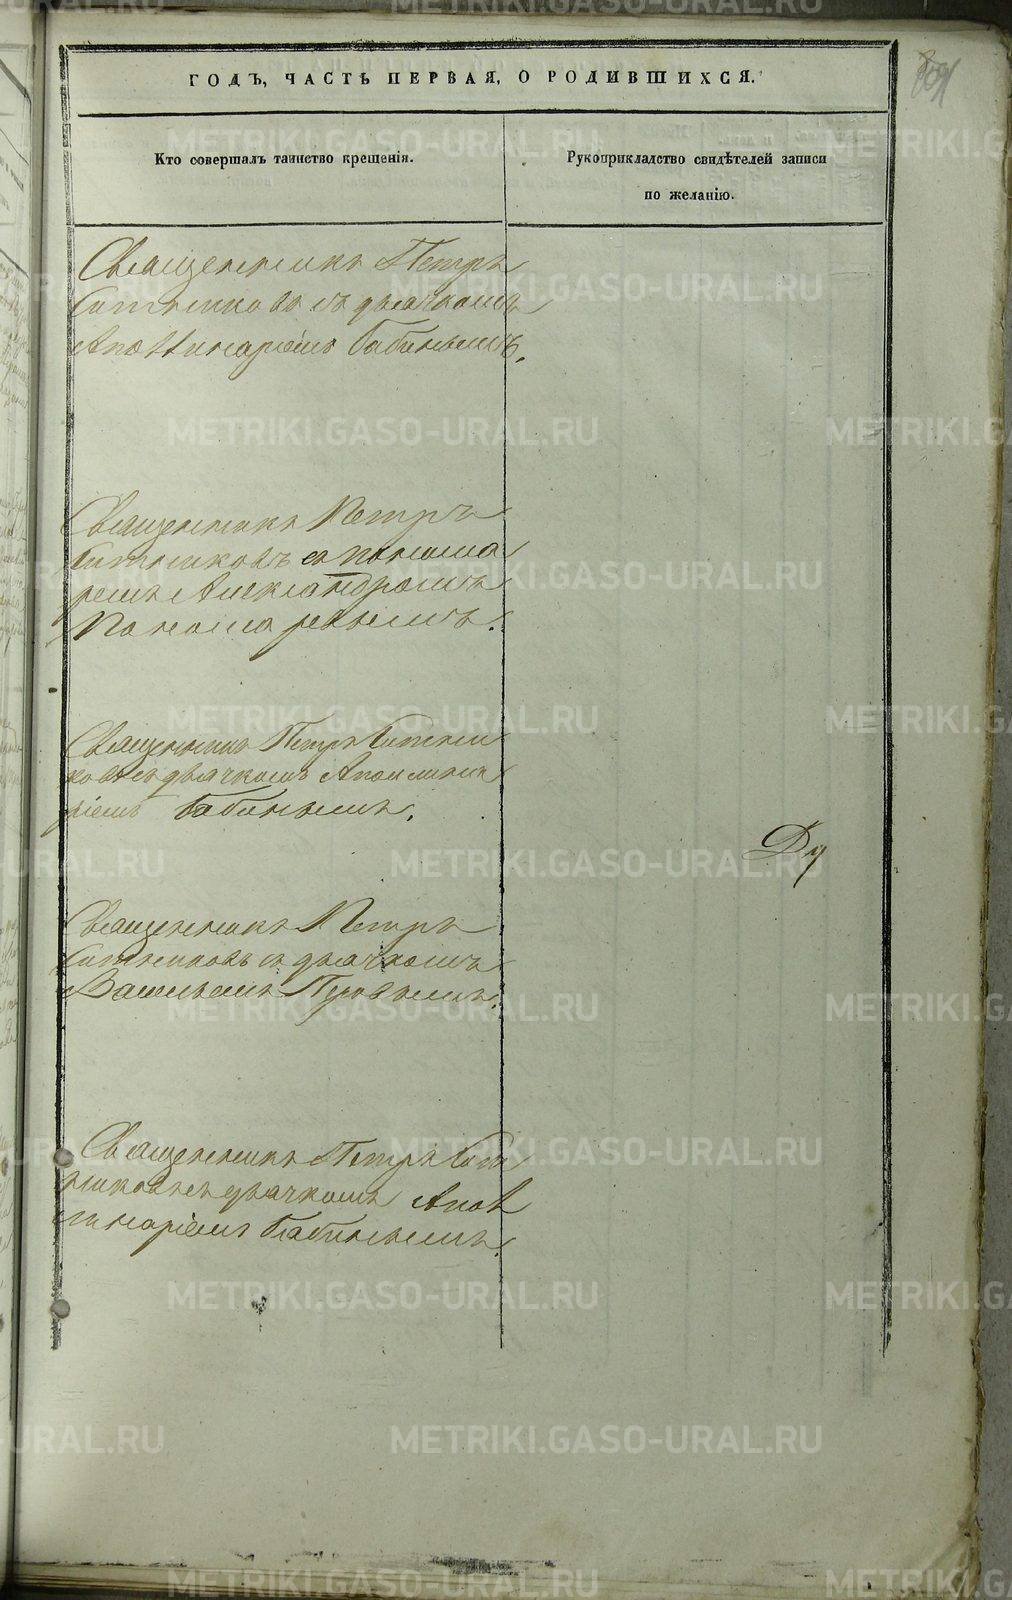 ГОДЪ, ЧАСТЬ ПЕРВАЯ, О РОДИВШИХСЯ.
Кто совершалъ таинство крещенія.
Рукоприкладство свидѣтелей записи
по желанію.
Священникъ Петръ
Ситниковъ съ дьячкомъ
Аполлинаріемъ Бабинымъ.
Священникъ Петръ
Ситниковъ съ понома
ремъ Александромъ
Пономаревымъ.
Священникъ Петръ Ситни
ковъ съ дьячкомъ Аполлина
ріемъ Бабинымъ.
Священникъ Петръ
Ситниковъ съ дьячкомъ
Васильемъ
Священникъ Петръ Сит
никовъ съ дьячкомъ Апол
линаріемъ Бабинымъ.
METRIKI.GASO-URAL.RU